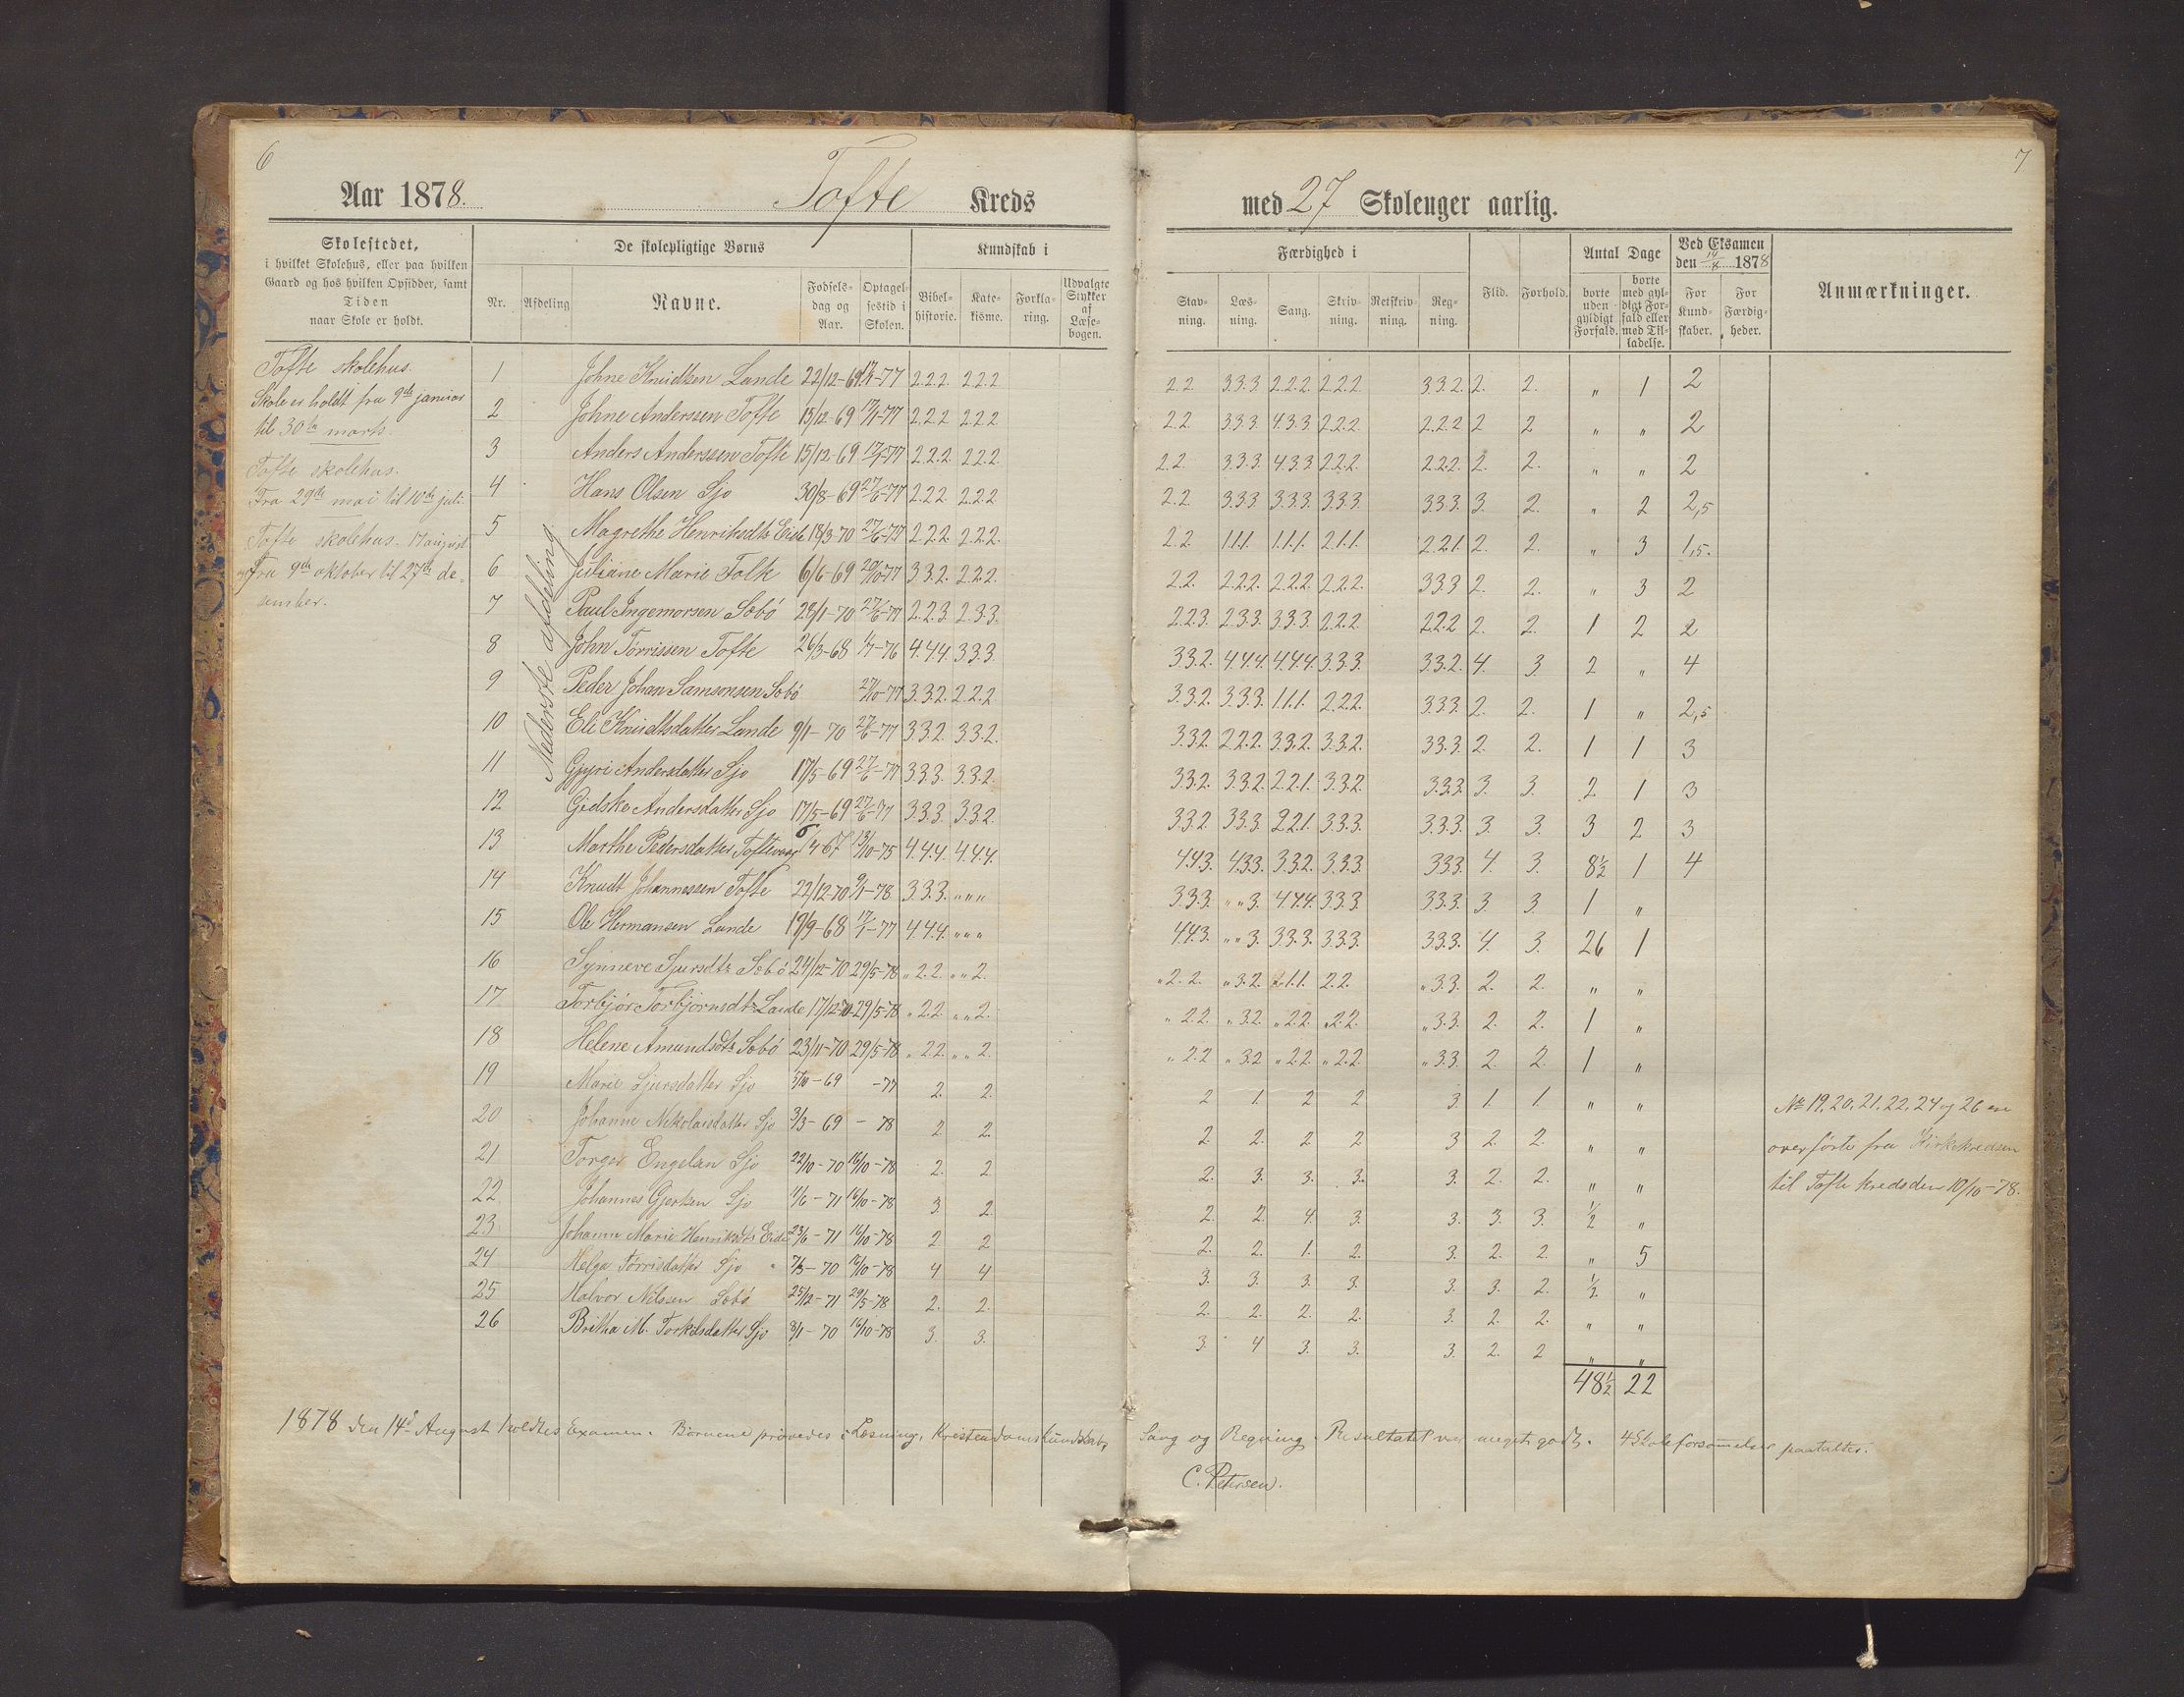 6
Aar 1878. Tofte Kreds
Skolestedet,
i hvilket Skolehus, eller paa hvilken
Gaard og hos hvilken Opsidder, samt
Tiden
naar Skole er holdt.
De skolepligtige Børns
Nr. Afdeling Navne. Fødsels-dag og Aar. Optagelsestid i Skolen.
Kundskab i
Bibelhistorie. Katekisme. Forklaring. Udvalgte Stykker af Læsebogen.
Tofte skolehus.
Skole er holdt fra 9de januar
til 30te marts.
Tofte skolehus.
Fra 29de mai til 10de juli.
Tofte skolehus. 17 august
og fra 9de oktober til 27de de-
sember.
Nederste afdeling.
1 Johne Knudtsen Lande 22/12-69 17/1-77 2.2.2. 2.2.2
2 Johne Anderssen Tofte 15/12-69 17/1-77 2.2.2 2.2.2
3 Anders Anderssen Tofte 15/12-69 17/1-77 2.2.2 2.2.2.
4 Hans Olsen Sjo 30/8-69 27/6-77 2.2.2 2.2.2
5 Magrethe Henriksdtr Eide 18/3-70 27/6-77 2.2.2. 2.2.2.
6 Juliane Marie Folk 6/6-69 20/10-77 3.3.2. 2.2.2.
7 Paul Ingemorsen Søbø 28/1-70 27/6-77 2.2.3. 2.3.3.
8 John Tørrissen Tofte 26/3-68 1/7-76 4.4.4. 3.3.3.
9 Peder Johan Samsonsen Søbø 27/10-77 3.3.2. 2.2.2
10 Eli Knudtsdatter Lande 9/1-70 27/6-77 3.3.2. 3.3.2.
11 Gjyri Andersdatter Sjo 17/5-69 27/6-77 3.3.3. 3.3.2.
12 Gidske Andersdatter Sjo 17/5-69 27/6-77 3.3.3. 3.3.2.
13 Marthe Pedersdatter Toftevaag 67 13/10-75 4.4.4. 4.4.4.
14 Knudt Johannessen Tofte 22/12-70 9/1-78 3.3.3. " " "
15 Ole Hermansen Lande 19/9-68 17/1-77 4.4.4. " " "
16 Synneve Sjursdtr Søbø 24/12-70 29/5-78 " 2.2. " " 2.
17 Torbjør Torbjørnsdtr Lande 17/12-70 29/5-78 " 2.2. " " 2.
18 Helene Amundsdtr Søbø 23/11-70 29/5-78 " 2.2. " " 2.
19 Marie Sjursdatter Sjo 5/10-69 -77 2. 2.
20 Johanne Nikolaisdatter Sjo 3/3-69 -78 2. 2.
21 Torger Engelsen Sjo 22/10-70 16/10-78 2. 2
22 Johannes Gjertsen Sjo 11/6-71 16/10-78 3. 2
23 Johanne Marie Henriksdtr Eide 23/6-71 16/10-78 2 2
24 Helga Tørrisdatter Sjo 7/3-70 16/10-78 4 4
25 Halvor Nilssen Søbø 25/12-71 29/5-78 2. 2.
26 Britha M. Torkelsdatter Sjo 8/1-70 16/10-78 3. 3.
1878 den 14d August holdtes Examen. Børnene prøvedes i Læsning, Kristendomskundskab,
7
med 27 Skoleuger aarlig.
Færdighed i
Stavning. Læsning. Sang. Skrivning. Retskrivning. Regning.
Flid. Forhold.
Antal Dage
borte uden gyldigt Forfald. borte med gyldigt Forfald eller med Tilladelse.
Ved Eksamen
den 14/8 1878
For Kundskaber. For Færdigheder.
Anmærkninger.
2.2. 3.3.3 2.2.2. 2.2.2 3.3.2. 2. 2. " 1 2
2.2. 3.3.3. 4.3.3 2.2.2. 2.2.2 2 2 " " 2
2.2. 3.3.3. 4.3.3 2.2.2. 2.2.2. 2. 2. " " 2
2.2. 3.3.3 3.3.3. 3.3.3. 3.3.3. 3. 2. " 2 2,5
2.2 1.1.1. 1.1.1. 2.1.1. 2.2.1. 2. 2. " 3 1,5.
2.2. 2.2.2. 2.2.2. 2.2.2. 3.3.3 2. 2. " 3 2
2.2.3. 2.3.3. 3.3.3. 2.2.2. 2.2.2 2. 2. 1 2 2
3.3.2. 4.4.4. 4.4.4. 3.3.3. 3.3.2. 4. 3. 2 " 4
3.3.2. 3.3.3. 1.1.1. 2.2.2. 3.3.3. 2. 2. 1 " 2,5
3.3.2. 2.2.2. 3.3.2. 3.3.2. 3.3.3. 2. 2. 1 1 3
3.3.2. 3.3.2. 2.2.1. 3.3.2. 3.3.3. 3. 3. 2 1 3
3.3.2. 3.3.3. 2.2.1. 3.3.3. 3.3.3. 3. 3. 3 2 3
4.4.3. 4.3.3. 3.3.2. 3.3.3. 3.3.3. 4. 3. 8½ 1 4
3.3.3. " " 3. 4.4.4. 3.3.3 3.3.3. 3. 3. 1 "
4.4.3. " " 3. 3.3.3. 3.3.3. 3.3.3. 4. 3. 26 1
" 2.2. " 3.2. 1.1. 2.2. " 3.3. 2. 2. " "
" 2.2. " 3.2. " 2.2. " 2.2. " 3.3. 2. 2. 1 "
" 2.2 " 3.2 " 2.2. " 2.2. " 3.3. 2. 2. 1 "
2 1. 2 2 3. 1. 1. " "
2 2. 2 2 3 2. 2. " "
2. 3. 3. 3. 3. 2. 2. " "
2. 2. 4. 3. 3. 3. 3. ½ "
2. 2. 1. 2. 3. 2. 2. " 5
3. 3. 3. 3. 3. 3. 2. ½ "
2. 2. 2. 2. 3. 2. 2. " "
3. 4 3. 3. 3. 2. 2 " "
48½ 22
No 19, 20, 21, 22, 24 og 26 ere
overførte fra Kirkekredsen
til Tofte kreds den 10/10-78.
Sang og Regning. Resultatet var meget godt. 4 Skoleforsømmelser paataltes.
C. Petersen.